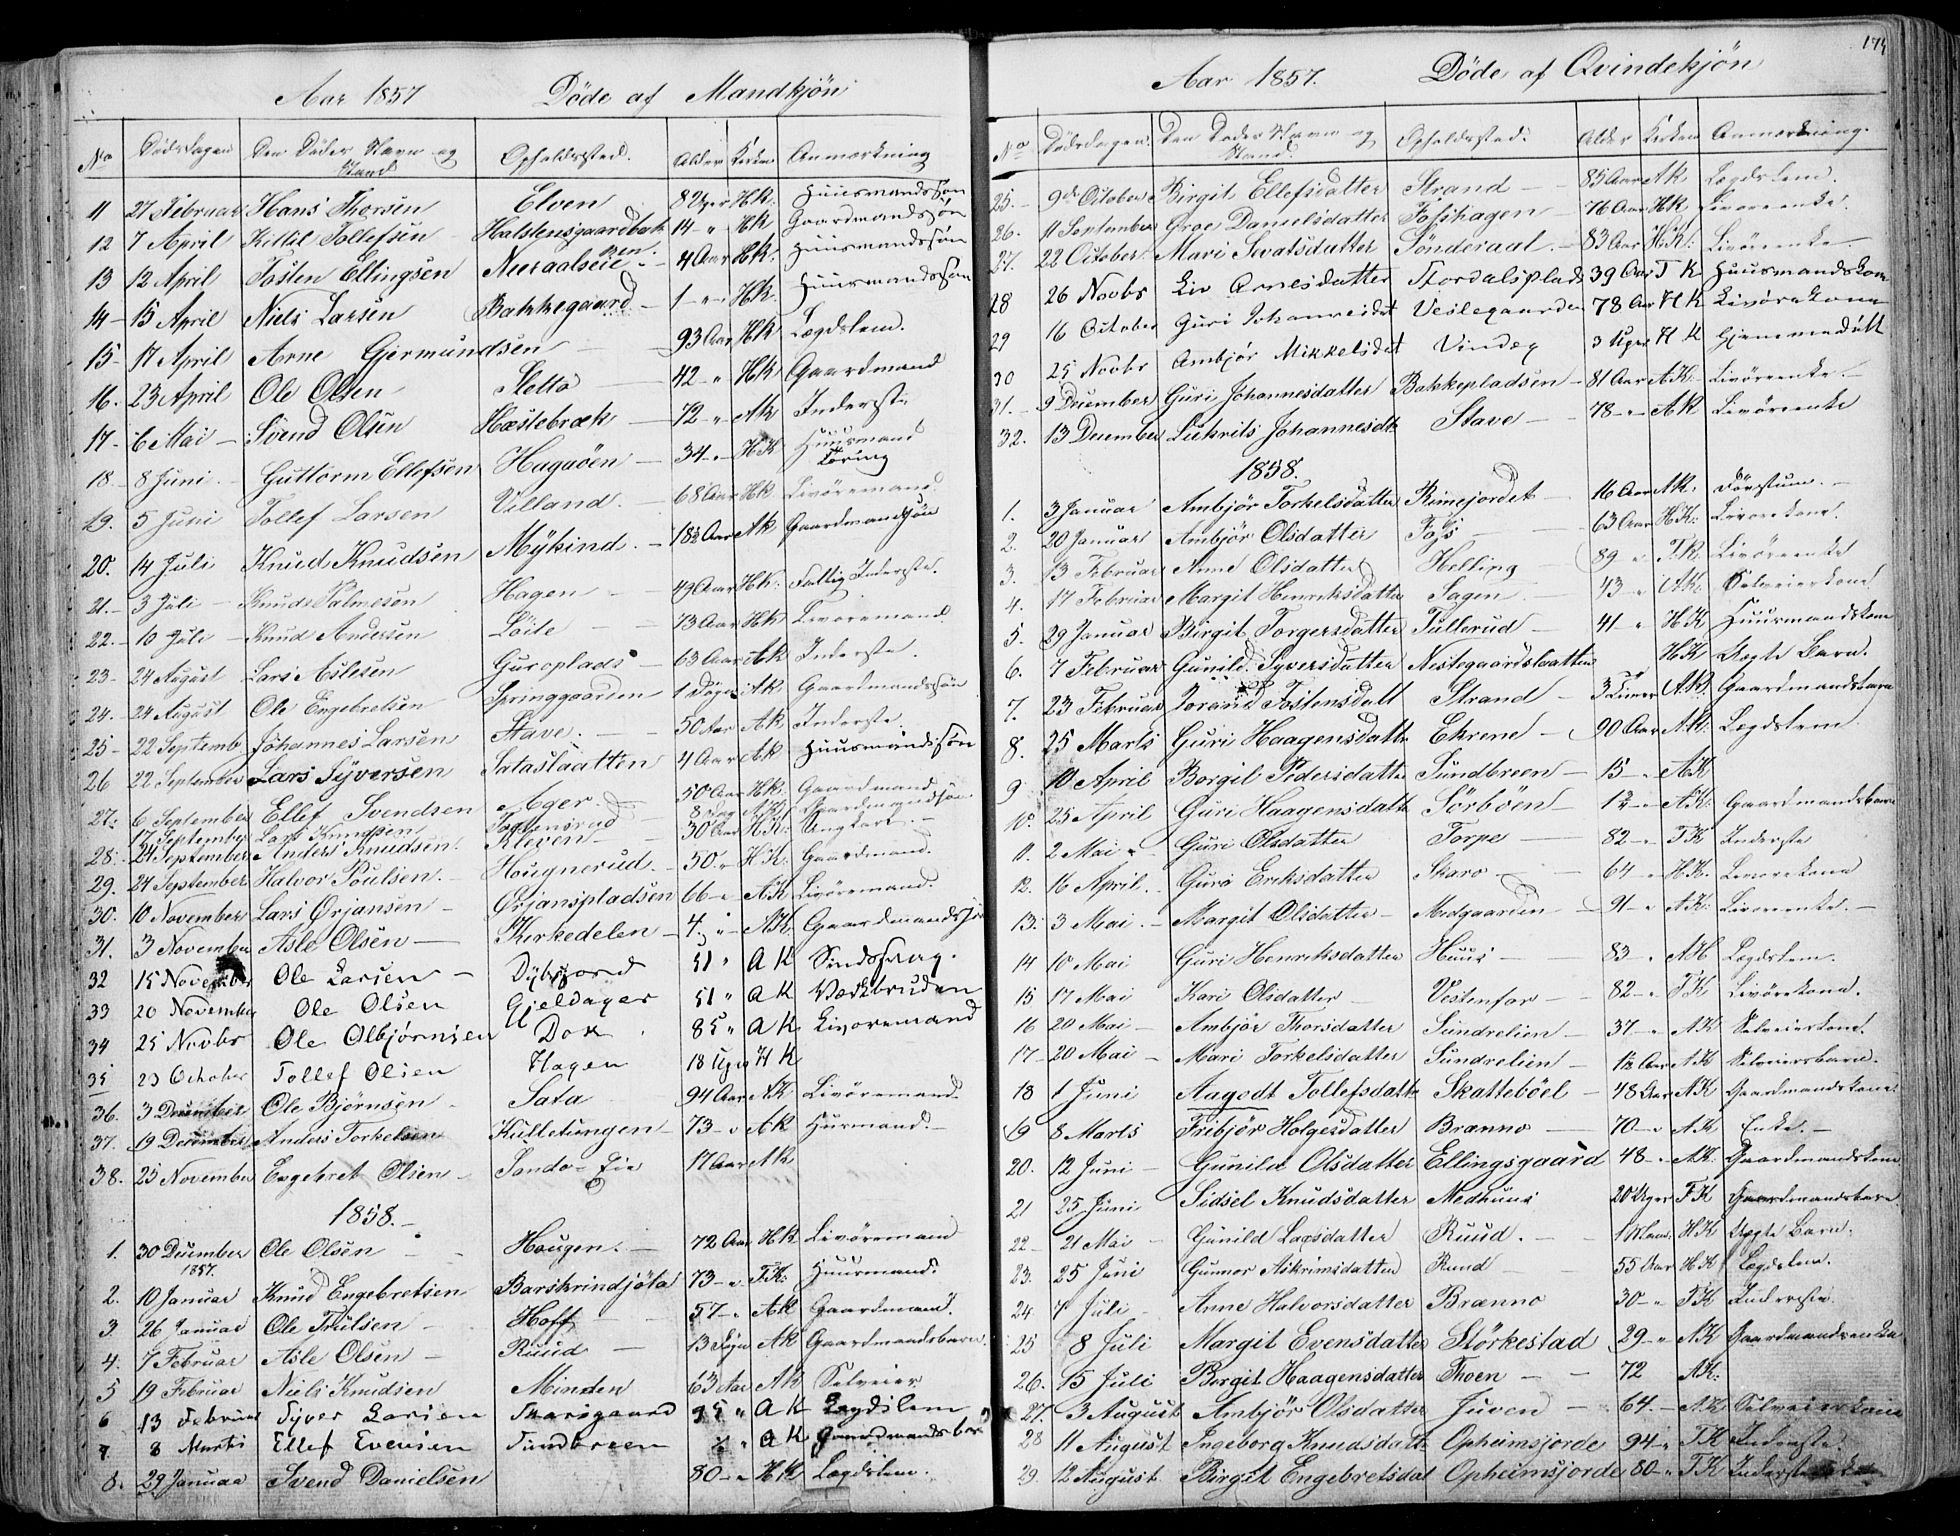 Aar 1857 Døde af Mandkjøn
No Dødsdagen Den Dødes Navn og Stand Opholdssted. Alder Kirken Anmærkning
11 27 Februar Hans Thorsen Elven 8 Uger Hk. Huusmandssøn
12 7 April Kittil Tollefsen 14 - " Hk Gaardmandssøn
13 12 April Tosten Ellingsen 4 Aar Hk. Huusmandssøn
14 - 15 April Niels Larsen Bakkegaard - 1 - " - Hk. Huusmandssøn
15 - 17 April Arne Gjermundsen 93 Aar Hk Lægdslem.
16. 23 April Ole Olsen Sletto 42 - " Hk Gaardmand
17. - 6 Mai - Svend Olsen Hæstebræk 72 - " Ak Inderst.
18. - 8 Juni. Guttorm Ellefsen Hagaöen 34 - " - HK Huusmand
19. 5 Juni Tollef Larsen Villand. 68 Aar Hk Livöremand
20. 14 Juli Knud Knudsen Mykind. - 18½ Aar Ak Gaardmandssøn
21. - 3 Juli - Knud Palmesen Hagen 49 Aar Hk. Fattig Inderste.
22. - 10 Juli - Knud Andersen Löite 73 Aar Hk Livoremand
23 - 24 August Lars Aslesen Guroplads 63 Aar Ak Inderste.
24. - 24 August Ole Engebretsen Springgaarden 1 Døgn Ak Gaardmandssøn
25 - 22 Septemb Johannes Larsen Stave. - 50 Aar Ak Inderste.
26 22 September Lars Syversen Sataslaatten 4 Aar Ak Huusmandssøn
27. 6 September Ellef Svendsen Ager. 50 Aar Hk. Gaardmand
17 September Lars Knudsen Gaardmandssøn
28. 24 September Anders Knudsen. Kleven 30 Aar HK. Ungkarl. -
29. 24 September Halvor Poulsen. - Hougnerud. 50. " HK. Gaardmand.
30. 10 November Lars Ørjansen - Ørjanspladsen 66 - " AK Livöremand.
31. 3 November Asle Olsen - Kirkedelen - 4. " - AK. Gaardmandssøn
32 15 November Ole Larsen - Dybsjord 51 " A K Sindssvag.
33 20 November Ole Olsen Gjeldager 51 " A K Værkbruden
34 25 Novbr Ole Olbjørnsen Dok 85 " A K Livoremand
35 23 October Tollef Olsen Hagen 18 Uger H K
36. 3 December Ole Bjørnsen Sata 94 Aar AK Livöremand
37. 19 December Anders Torkelsen Kulletungen 73 - " Ak Huusmand. -
38. 25 November Engebret Olsen - Sando-Eie 17 Aar Ak
1858. -
1. 30 December 1857. Ole Olsen Hougen. - 72 Aar HK Livöremand
2. 10 Januar Knud Engebretsen Barskrindjöta 73 - " FK: Huusmand.
3. 26 Januar Ole Trulsen - Hoff 57 - " AK Gaardmand.
4. 7 Februar Asle Olsen - Ruud - 13 Døgn Ak Gaardmandsbarn.
5 19 Februar Niels Knudsen Minden 63 Aar Ak Selveier
6 13 Februar Syver Larsen 95 " A K Lægdslem
7 8 Marts Ellef Evensen Sundbreen " A K Gaardmandsbar
8. 29 Januar Svend Danielsen 80 - " HK Lægdslem.
174
Aar 1857. Døde af Qvindekjøn
No Dødsdagen. Den Dødes Navn og Stand. Opholdssted. Alder Kirken Anmærkning.
25. - 9de October Birgit Ellefsdatter Strand - 85 Aar Ak Lægdslem.
26. 11 September Groe Danielsdatter Fosshagen 76 Aar HK Livöreenke.
27. 22 October. Mari Sevatsdatter Sønderaal. - 83 Aar HK. Livöreenke. -
28 26 Novbr Liv Arnesdatter Stordalsplads 39 Aar T K Huusmandskone
29 16 October Guri Johannesdat Veslegaarden 78 Aar H K Livörekone
30 25 Novbr Ambjør Mikkelsdat Vindeg 3 Uger H K Hjemmedöbt
31. - 9 December Guri Johannesdatter Bakkepladsen - 81 Aar AK. Livöreenke. -
32. 13 December Lukrits Johannesdtr Stave - 78 - " AK Livöreenke
1858.
1. 3 Januar Ambjør Torkelsdatter Rimejordet - 16 Aar Ak.
2. 20 Januar Ambjör Olsdatter Foss 63 Aar HK. Livörekone.
3. 13 Februar Anne Olsdatter Helling 89 " T.K. Livöreenke
4. 17 Februar Margit Henriksdatter Sagen - 43 - " AK. Selveierkone
5. 29 Januar Birgit Torgersdatter Tullerud - 41 - " HK Huusmandskone
6. 7 Februar Gunild Syversdatter Nestegaardslaatten HK Uægte Barn.
7. 23 Februar Jorand Tostensdatt Strand - 3 Timer AK. Gaardmandsbarn
8. 25 Marts Guri Haagensdatt Ekrene - 90 Aar AK. Lægdslem
9 10 April Borgil Pedersdatter Sundbreen - 15 - " AK
10. 25 April Guri Haagensdatt Sörböen - 1½ - " AK. Gaardmandsbarn
11. 2 Mai - Guri Olsdatter Torpe - 82 - " TK Inderste
12. 16 April. Guro Eriksdatter Skaro - 64 - " HK. Livörekone
13. 3 Mai. - Margit Olsdatter - Medgaarden - 91 - " AK. Livöreenke. -
14 10 Mai Guri Henriksdatter Huus - 83 - " AK Lægdslem.
15 17 Mai Kari Olsdatter - Vestenfor - 82 - " TK Livörekone.
16 20 Mai - Ambjör Thorsdatter Sundrelien - 37 - " AK Selveierkone.
17 - 20 Mai - Mari Torkelsdatter Sundrelien - 1½ Aar AK Selveiersbarn.
18 1 Juni Aagodt Tollefsdatt Skatteböel - 48 Aar AK Gaardmandskone
19 8 Marts Tribjör Holgersdatter Brænno - 70 - " AK Enke. -
20. 12 Juni - Gunild Olsdatter Ellingsgaard 48 - " AK. Gaardmandskone
21 25 Juni Sidsel Knudsdatter Nedhuus 20 Uger TK Gaardmandsbarn
22 - 21 Mai - Gunild Larsdatter Ruud. - HK Uægte Barn.
23. 25 Juni Gunnor Asbrimsdatter Rund 55 Aar HK Lægdslem.
24 7 Juli - Anne Halvorsdatter Brænno 30 - " TK Inderste.
25 8 Juli Margit Evensdatter Störkestad 29 - " AK Gaardmandsenke
26. 15 Juli Birgit Haagensdatter Thoen - 72 AK.
27. 3 August Ambjör Olsdatter Juven - 64. - AK. Selveierkone
28 11 August Ingeborg Knudsdatt Opheimsjorde 94 - " TK Inderste.
29. 12 August Birgit Engebretsdat Opheimsjorde 80 - " TK